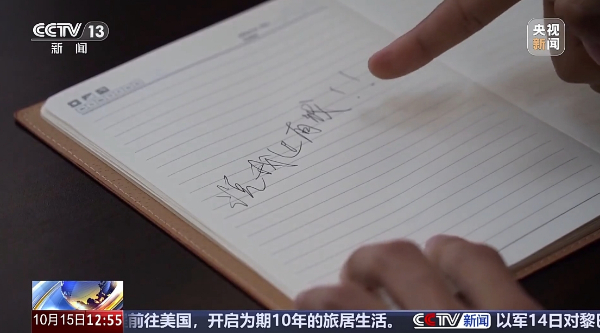 CCTV 13
新闻
央视
新闻
有效！！
10月15日 12:55 前往美国，开启为期10年的旅居生活。 CCTV 新闻 以军14日对黎